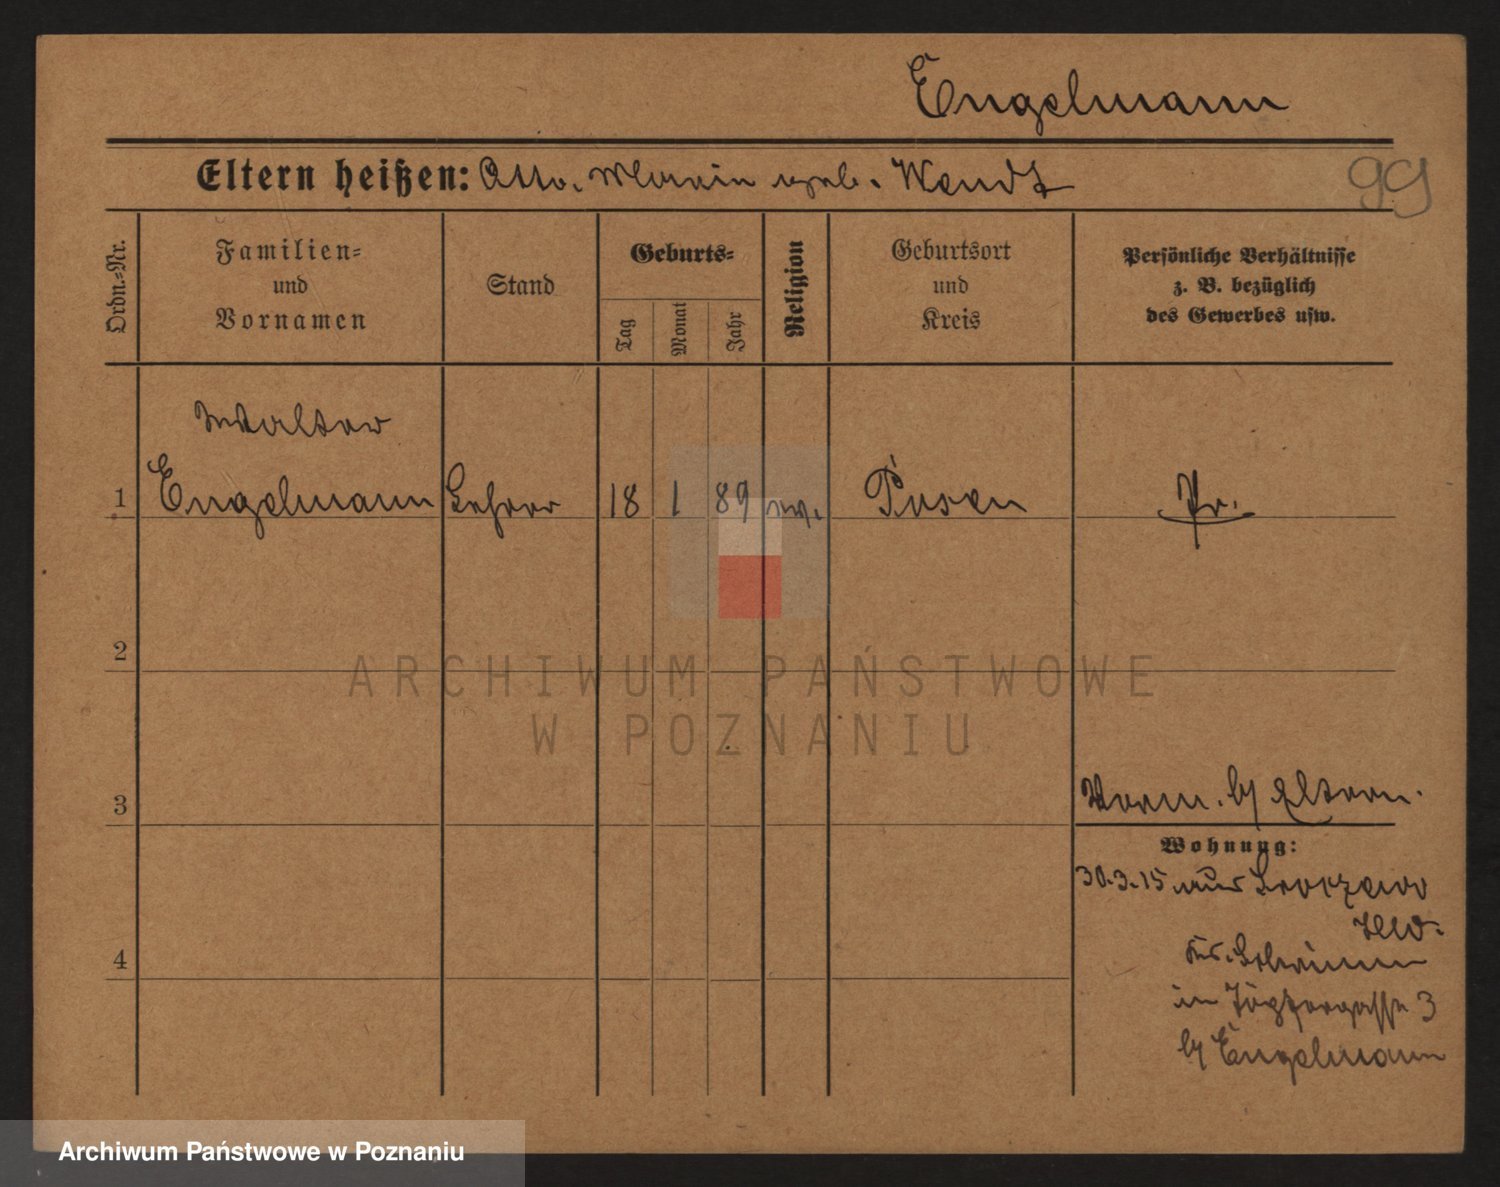 Engelmann
Eltern heißen: Otto, Maria geb. Wendt
99
Ordn.-Nr.
Familien-
und
Vornamen
Stand
Geburts-
Tag
Monat
Jahr
Religion
Geburtsort
und
Kreis
Persönliche Verhältnisse
z. B. bezüglich
des Gewerbes usw.
Walter
1 Engelmann Lehrer 18 1 89 ev. Posen Pr.
2
ARCHIWUM PAŃSTWOWE
W POZNANIU
3
Vorm. by Eltern.
Wohnung:
30.3.15 aus
4
Kr.
in 3
by Engelmann
Archiwum Państwowe w Poznaniu